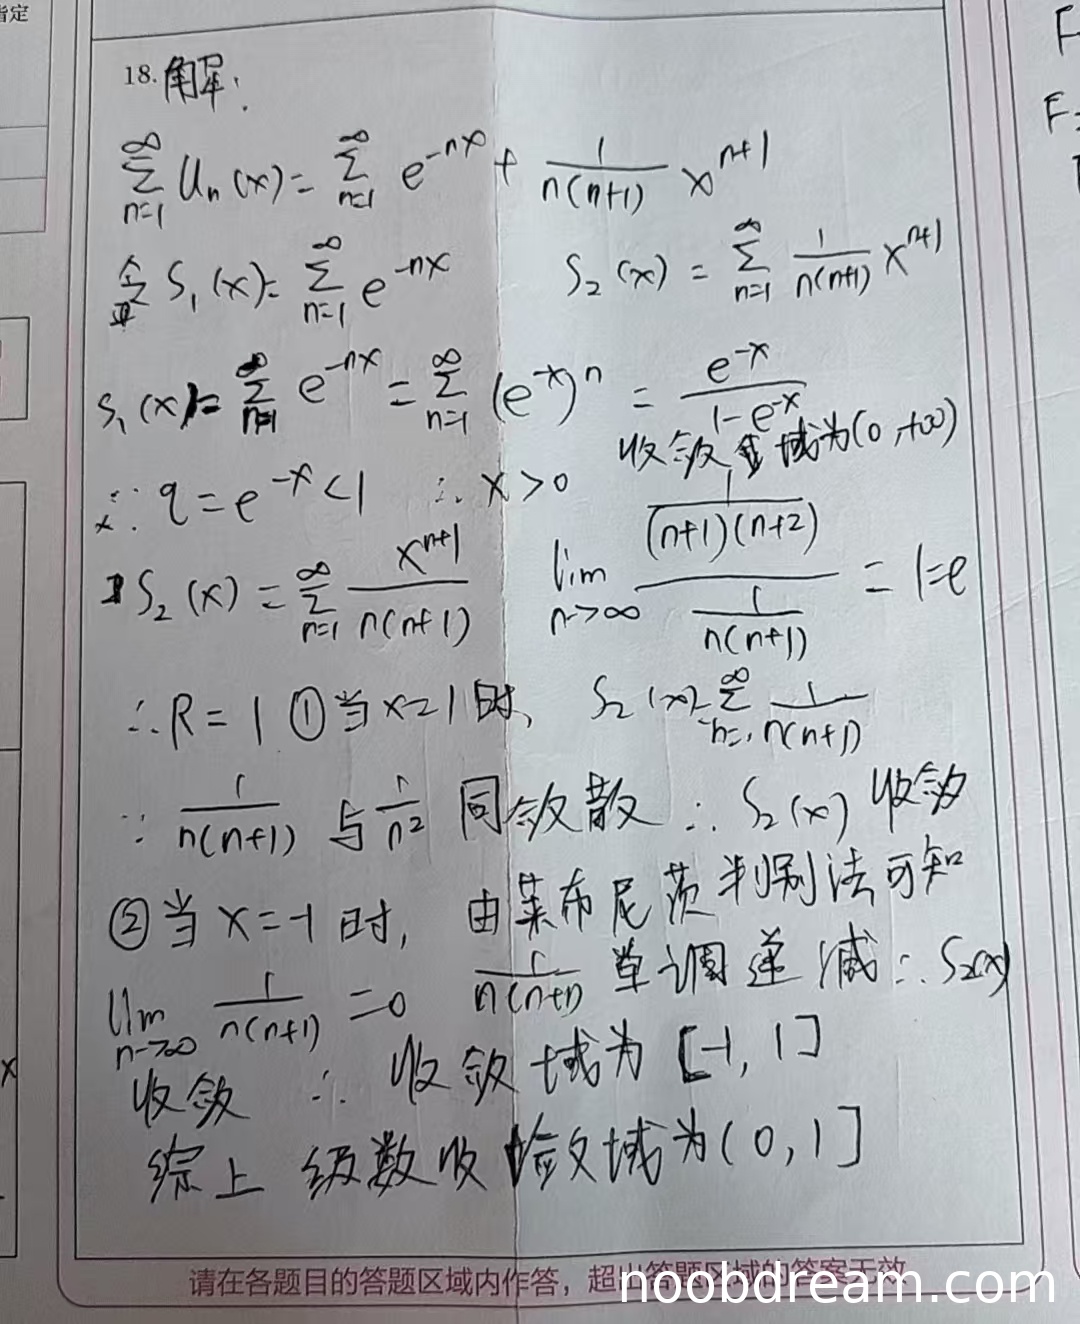 指定
18. 解:
∞∑n=1 Un(x) = ∞∑n=1 e^{-nx} + 1/(n(n+1)) x^{n+1}
令 S₁(x) = ∞∑n=1 e^{-nx}    S₂(x) = ∞∑n=1 1/(n(n+1)) x^{n+1}
S₁(x) = ∞∑n=1 e^{-nx} = ∞∑n=1 (e^{-x})^n = e^{-x}/(1-e^{-x})
收敛域为(0,+∞)
∵ q = e^{-x} < 1 ∴ x > 0
S₂(x) = ∞∑n=1 x^{n+1}/(n(n+1))    lim n→∞ (1/((n+1)(n+2)))/(1/(n(n+1))) = 1 = e
∴ R = 1 ①当x=1时, S₂(x) = ∞∑n=1 1/(n(n+1))
∵ 1/(n(n+1)) 与 1/n² 同敛散 ∴ S₂(x) 收敛
②当 x=-1 时, 由莱布尼茨判别法可知
lim n→∞ 1/(n(n+1)) = 0    1/(n(n+1)) 单调递减 ∴ S₂(x)
收敛 ∴ 收敛域为 [-1, 1]
综上 级数收敛域为(0,1]
请在各题目的答题区域内作答，超出答题区域的答案无效
noobdream.com